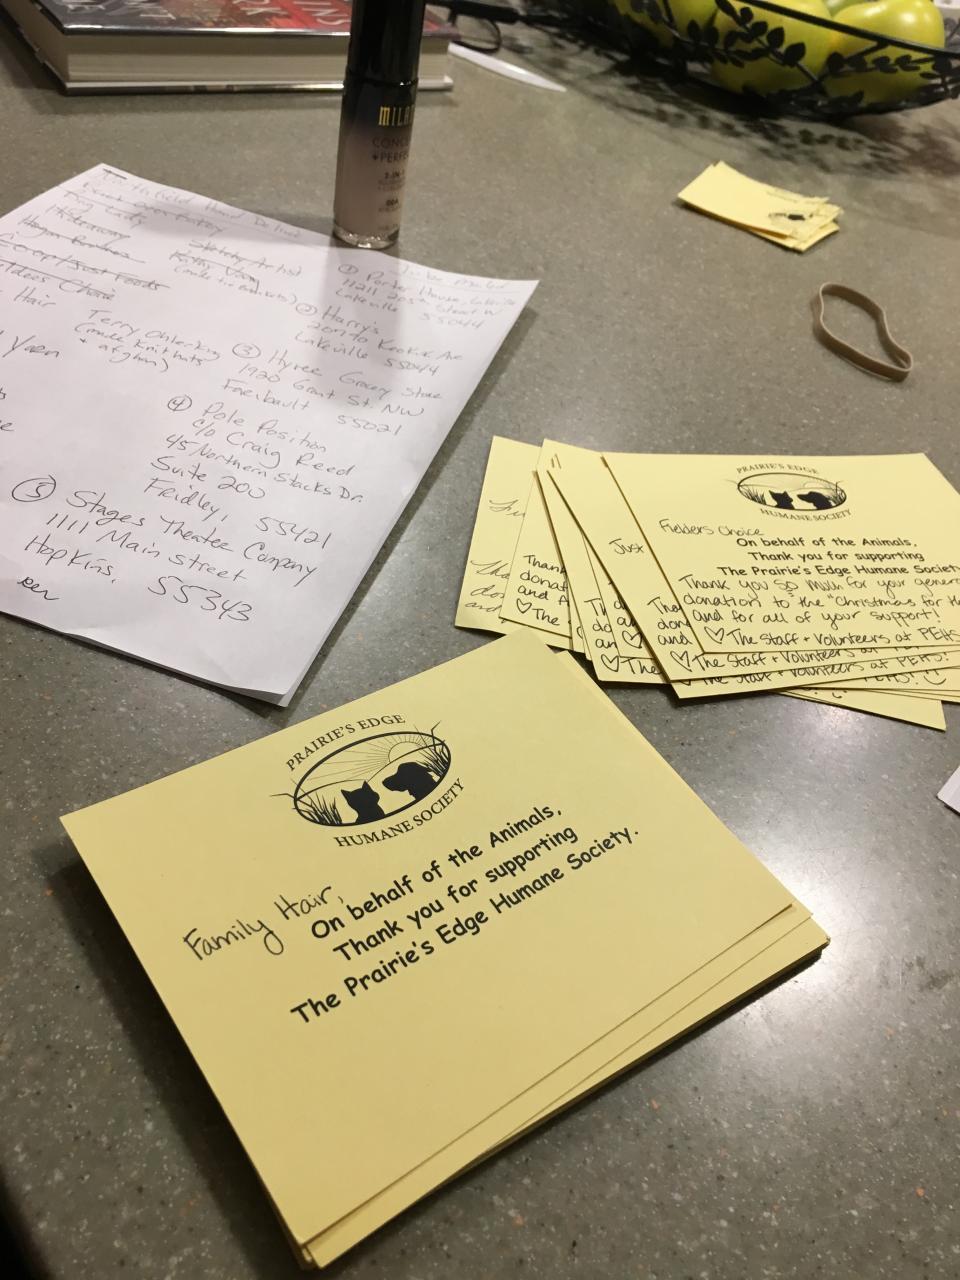 MILA
CONC
+PERF
2-IN-1
00A
Northfield Hand Deliver
Hideaway
Hair
Yarn
Sketchy Artist
Kathy Vang
Terry Ohlerking
(made knit hats
+ afghan)
to be mailed
① Porter House, Lakeville
11211 205th Street W
Lakeville 55044
② Harry's
20790 Ave
Lakeville 55044
③ Hyvee Grocery Store
1920 Grant St. NW
Faribault 55021
④ Pole Position
c/o Craig Reed
45 Northern Stacks Dr.
Suite 200
Fridley, 55421
⑤ Stages Theater Company
1111 Main Street
Hopkins, 55343
PRAIRIE'S EDGE
HUMANE SOCIETY
Fielders Choice
On behalf of the Animals,
Thank you for supporting
The Prairie's Edge Humane Society
Thank you so much for your gener
donation to the "Christmas for th
and for all of your support!
♡ The Staff + Volunteers at PEHS
Just
Thank
donat
and
♡ The
♡ The Staff + Volunteers at PEHS!
The Staff + Volunteers at PEHS!
PRAIRIE'S EDGE
HUMANE SOCIETY
Family Hair,
On behalf of the Animals,
Thank you for supporting
The Prairie's Edge Humane Society.